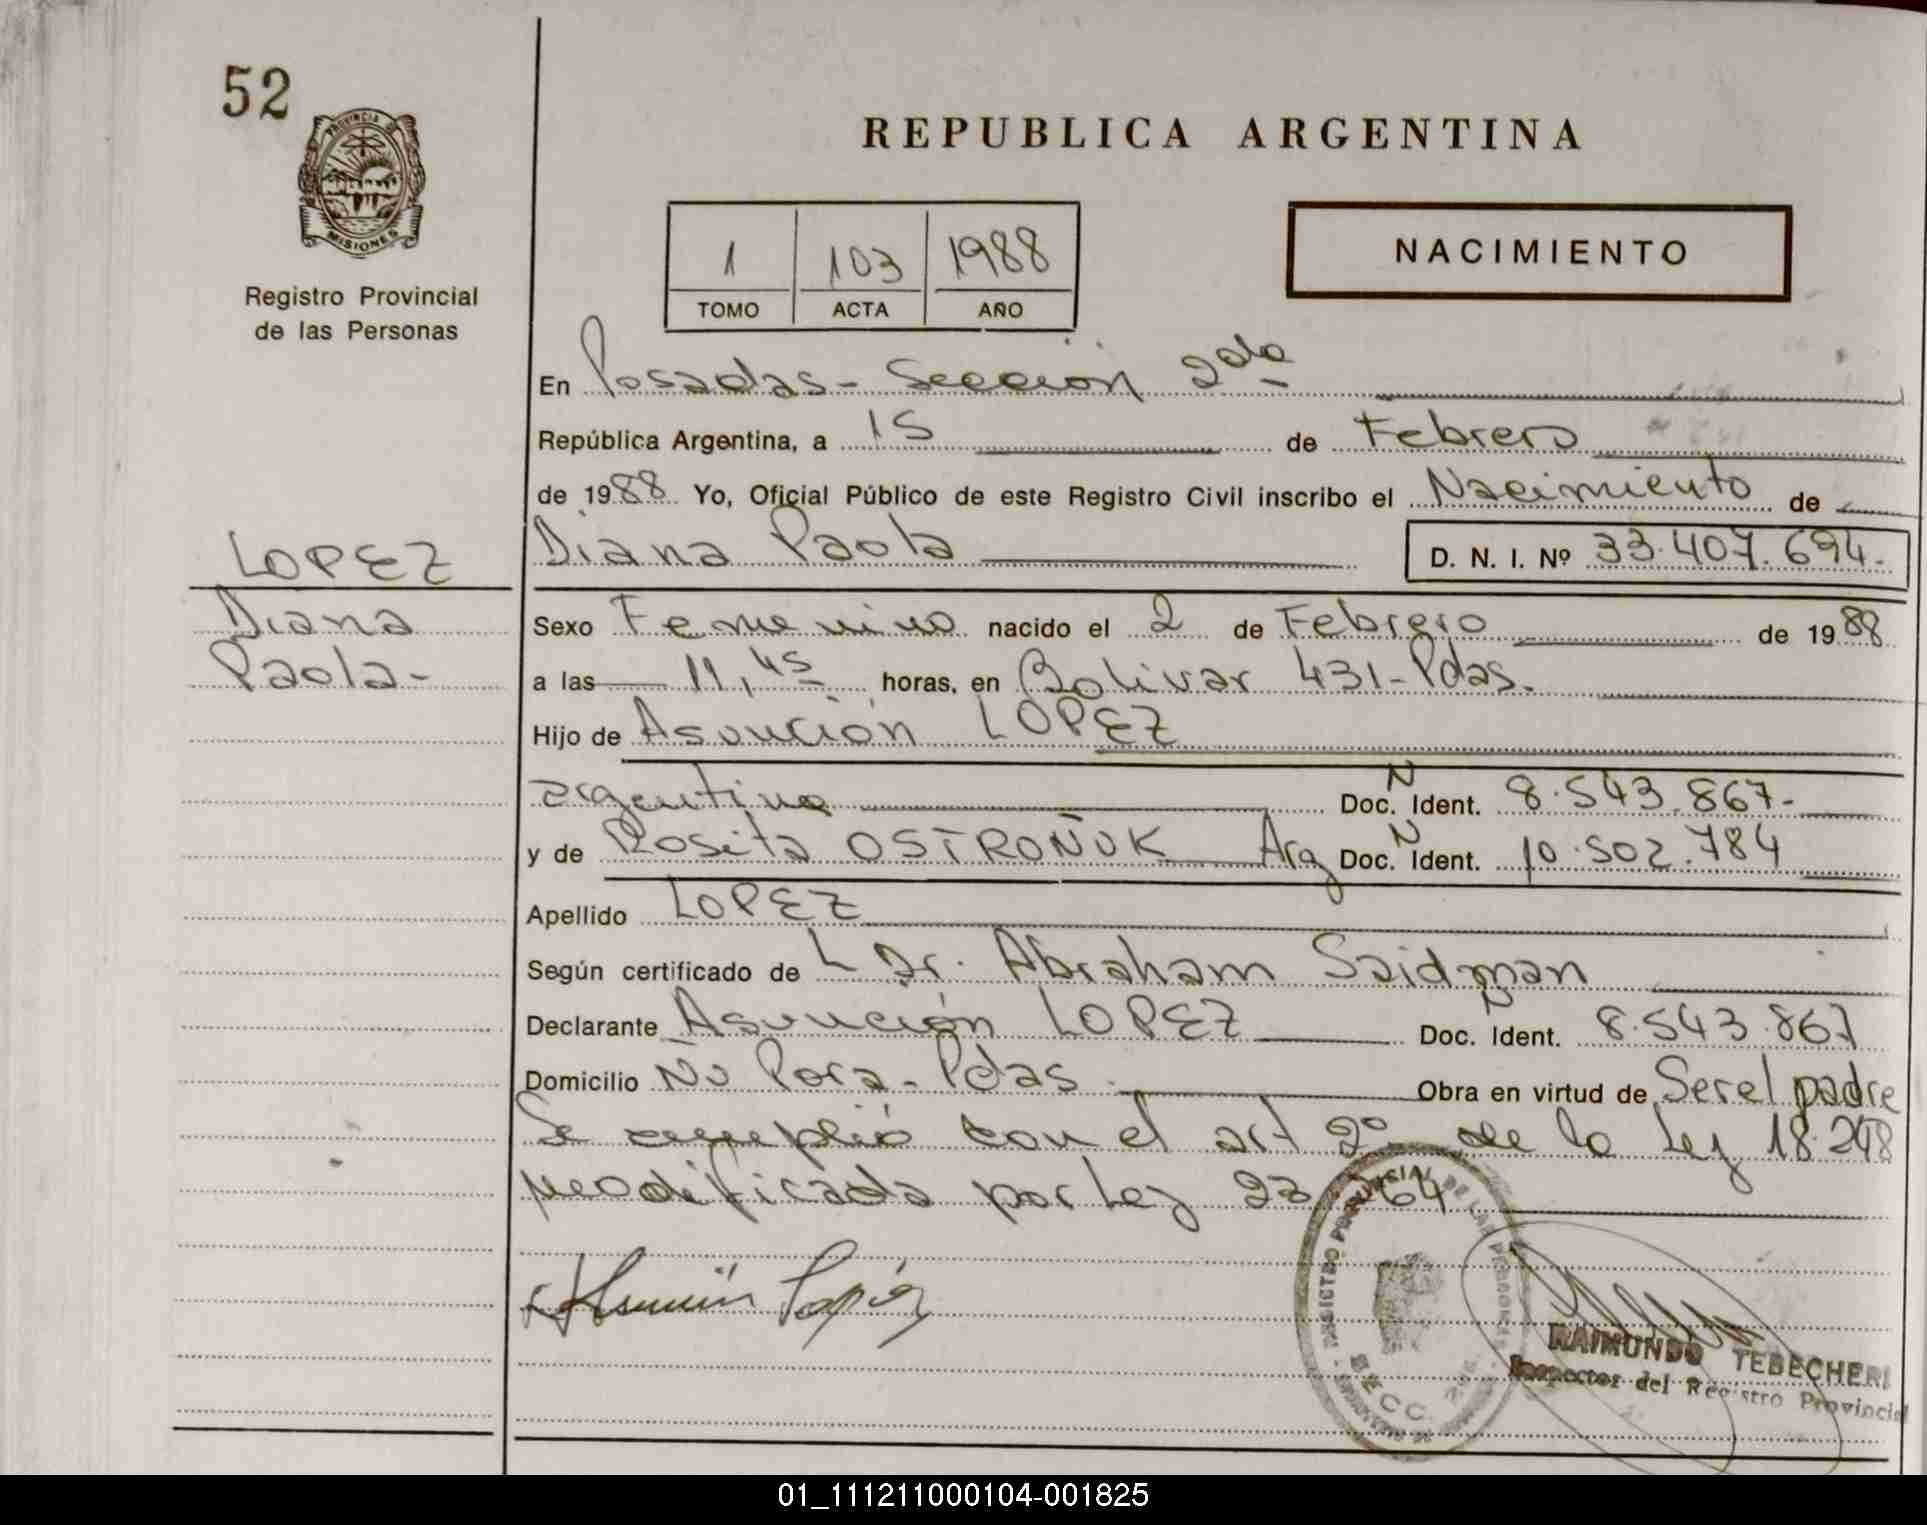 52
PROVINCIA DE
MISIONES
Registro Provincial
de las Personas
REPUBLICA ARGENTINA
1 103 1988
TOMO ACTA AÑO
NACIMIENTO
En Posadas - Sección 2da
República Argentina, a 15 de Febrero
de 1988 Yo, Oficial Público de este Registro Civil inscribo el Nacimiento de
LOPEZ
Diana
Paola-
Diana Paola D. N. I. Nº 33.407.694.
Sexo Femenino nacido el 2 de Febrero de 1988
a las 11,45 horas, en Bolivar 431-Pdas.
Hijo de Asunción LOPEZ
argentino Doc. N Ident. 8.543.867-
y de Rosita OSTROÑUK Arg Doc. N Ident. 10.502.784
Apellido LOPEZ
Según certificado de L Dr. Abraham Saidman
Declarante Asunción LOPEZ Doc. N Ident. 8.543.867
Domicilio Ñu Pora - Pdas Obra en virtud de Ser el padre
Se cumplió con el art 2º de la Ley 18.248
modificada por Ley 23 264
Asunción López
REGISTRO PROVINCIAL DE LAS PERSONAS
SECC.
RAIMUNDO TEBECHERI
Inspector del Registro Provincial
01_111211000104-001825